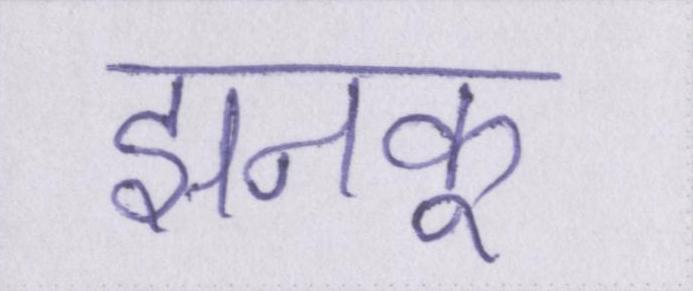 झनकू